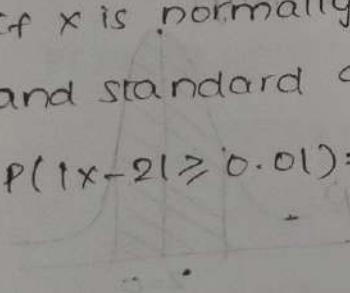 If x is normally
and standard
P(|x-2|≥0.01)=